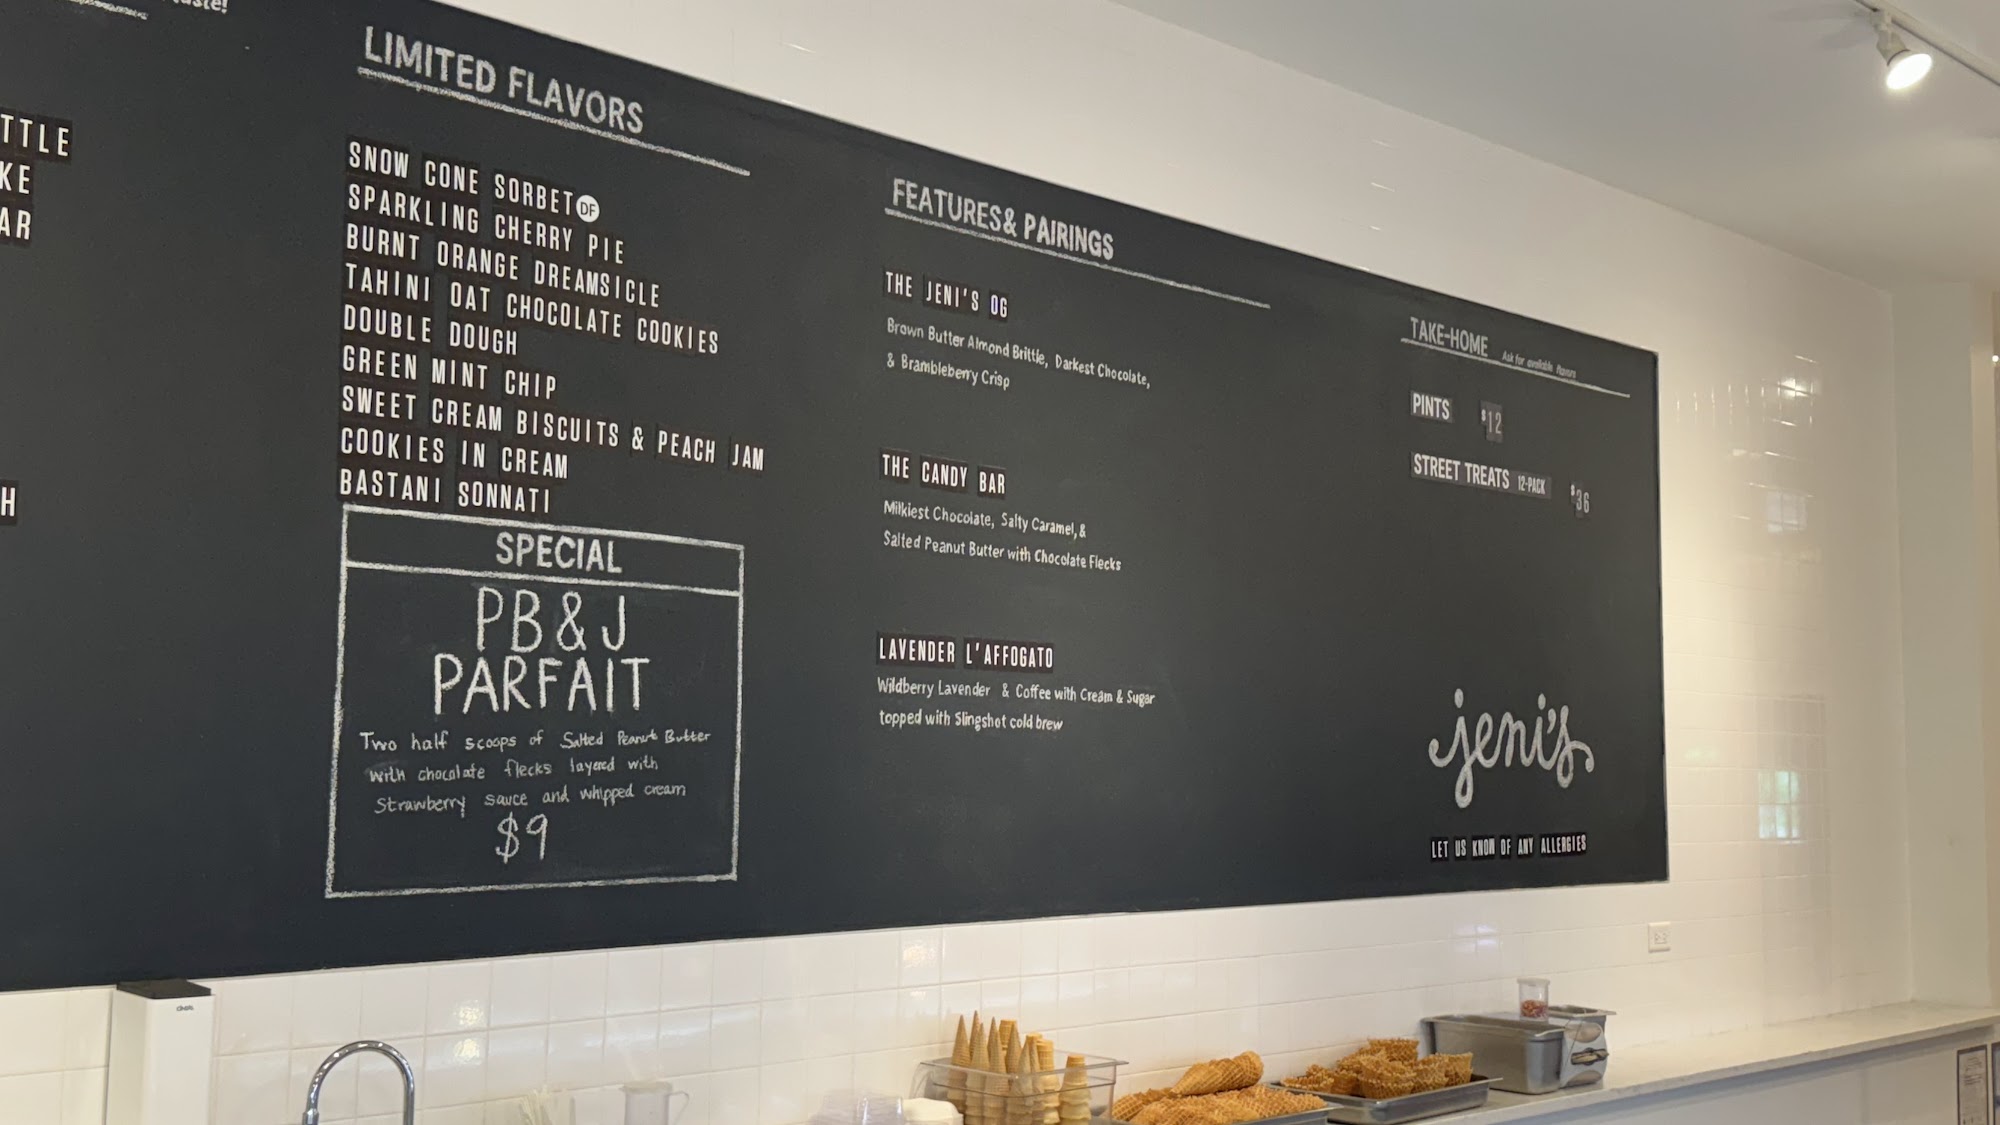 TTLE
KE
AR
H
LIMITED FLAVORS
SNOW CONE SORBET DF
SPARKLING CHERRY PIE
BURNT ORANGE DREAMSICLE
TAHINI OAT CHOCOLATE COOKIES
DOUBLE DOUGH
GREEN MINT CHIP
SWEET CREAM BISCUITS & PEACH JAM
COOKIES IN CREAM
BASTANI SONNATI
SPECIAL
PB&J
PARFAIT
Two half scoops of Salted Peanut Butter
with chocolate flecks layered with
Strawberry sauce and whipped cream
$9
FEATURES & PAIRINGS
THE JENI'S OG
Brown Butter Almond Brittle, Darkest Chocolate,
& Brambleberry Crisp
THE CANDY BAR
Milkiest Chocolate, Salty Caramel, &
Salted Peanut Butter with Chocolate Flecks
LAVENDER L'AFFOGATO
Wildberry Lavender & Coffee with Cream & Sugar
topped with Slingshot cold brew
TAKE-HOME Ask for available flavors
PINTS $12
STREET TREATS 12-PACK $36
jeni's
LET US KNOW OF ANY ALLERGIES